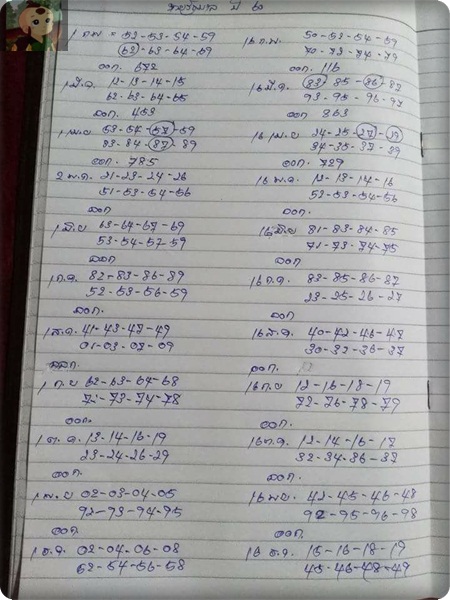 ปี 60
1 ก.พ = 53-53-54-59
63-63-64-69
ออก. 672
1 มี.ค. 12-13-14-15
62-63-64-65
ออก 453
1 เม.ย 53-54-57-59
83-84-87-89
ออก. 785
2 พ.ค. 21-23-24-26
51-53-54-56
ออก
1 มิ.ย 63-64-67-69
53-54-57-59
ออก
1 ก.ค. 82-83-86-89
52-53-56-59
ออก.
1 ส.ค. 41-43-47-49
01-03-07-09
ออก.
1 ก.ย 62-63-64-68
72-73-74-78
ออก.
1 ต.ค. 13-14-16-19
23-24-26-29
ออก.
1 พ.ย 02-03-04-05
92-93-94-95
ออก
1 ธ.ค. 02-04-06-08
52-54-56-58
16 ก.พ. 50-53-54-59
70-73-74-79
ออก. 116
16 มี.ค. 83-85-86-87
93-95-96-97
ออก 363
16 เม.ย 24-25-27-29
34-35-37-39
ออก. 729
16 พ.ค. 12-13-14-16
52-53-54-56
ออก.
16 มิ.ย 81-83-84-85
71-73-74-75
ออก.
16 ก.ค. 83-85-86-87
23-25-26-27
ออก
16 ส.ค. 40-42-46-47
30-32-36-37
ออก.
16 ก.ย 12-16-18-19
72-76-78-79
ออก.
16 ต.ค. 12-14-16-17
32-34-36-37
ออก.
16 พ.ย. 42-45-46-48
92-95-96-98
ออก.
16 ธ.ค. 15-16-18-19
45-46-48-49